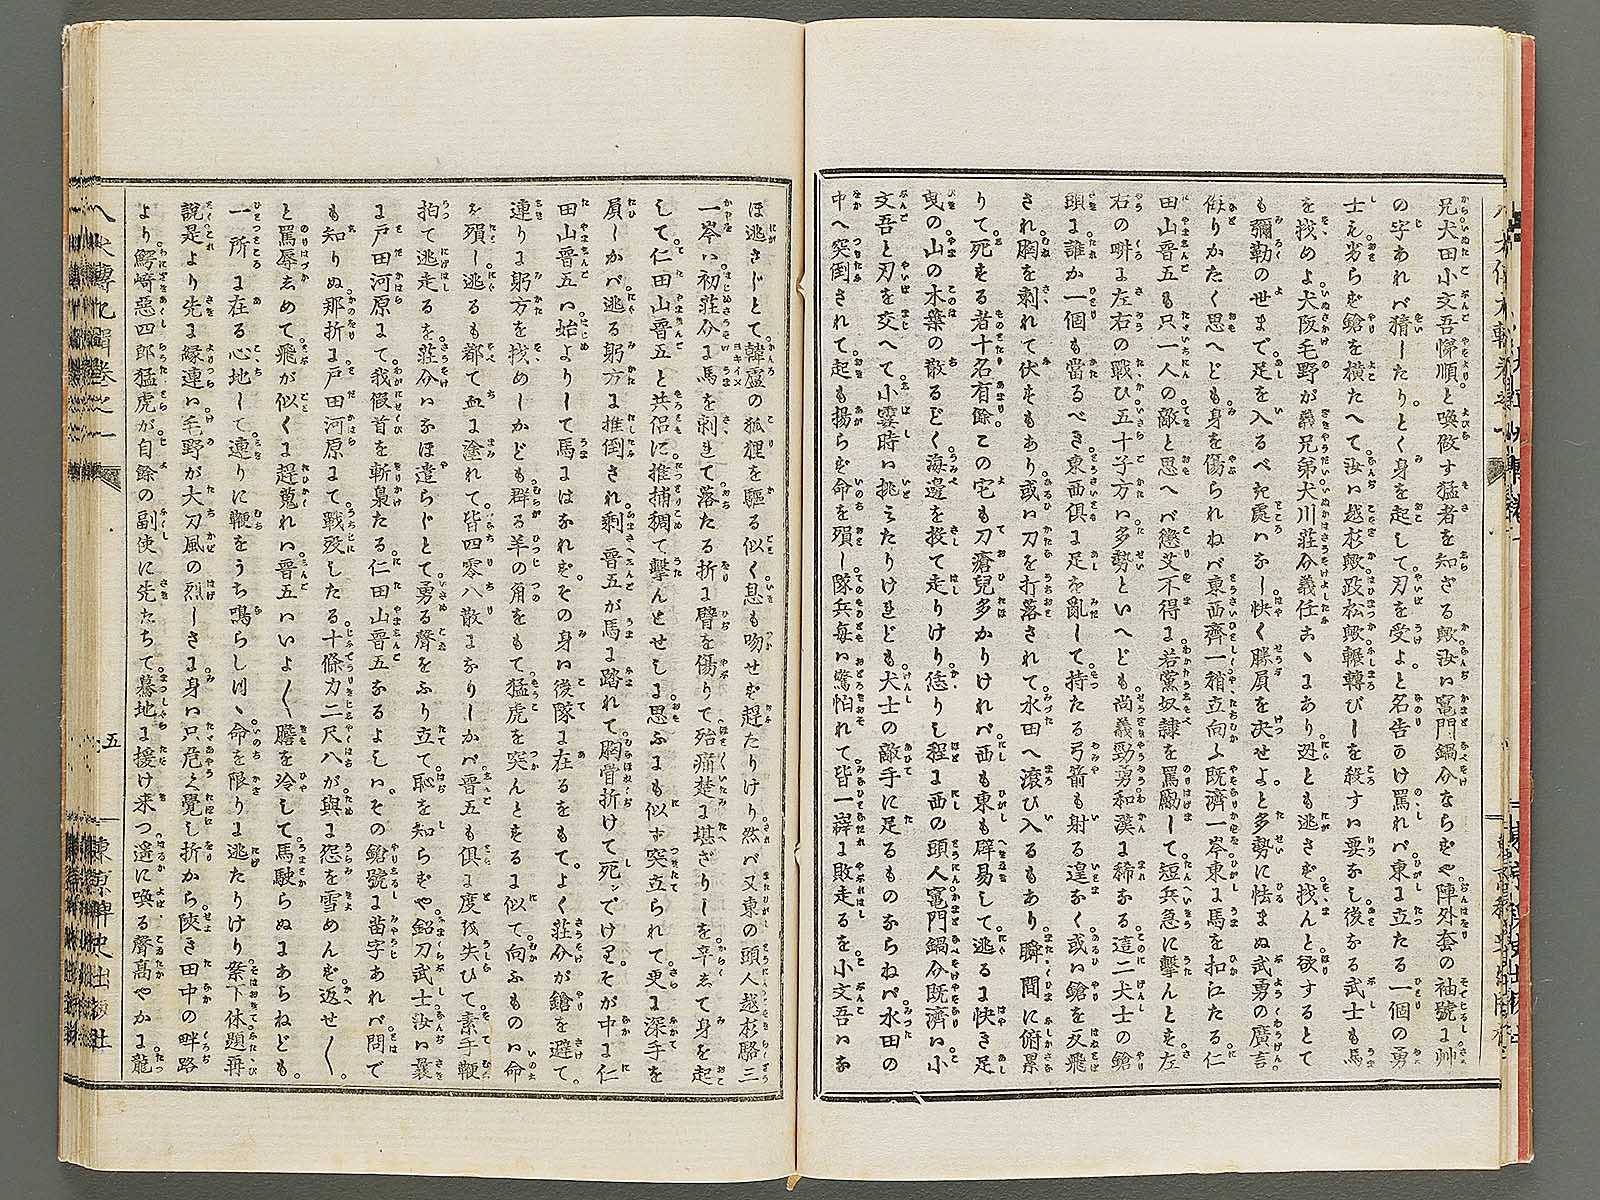 兄犬田小文吾悌順と喚做す猛者を知ざる歟汝ハ竈門鍋介ならずや陣外套の袖號に艸
の字あれバ猜したりとく身を起して刃を受よと名告かけ罵れバ東に立たる一個の勇
士え劣らず鎗を橫たへて汝ハ越杉歟跂松歟輾轉びしを殺すハ要なし後なる武士も馬
を找めよ犬阪毛野が義兄弟犬川莊介義任こゝにあり迯とも逃さず找んと欲するとて
も彌勒の世まで足を入るべき處ハなし快く勝負を決せよと多勢に怯まぬ武勇の廣言
侮りかたく思へども身を傷られねバ東西齊一稍立向ふ既濟一岑東に馬を扣江たる仁
田山晋五も只一人の敵と思へバ懲艾不得に若黨奴隷を罵勵して短兵急に擊んとを左
右の畔に左右の戰ひ五十子方ハ多勢といへども尚義勁勇和漢に稀なる這二犬士の鎗
頭に誰か一個も當るべき東西俱に足を亂して持たる弓箭も射る遑なく或ハ鎗を反飛
され胸を刺れて伏すもあり或ハ刀を打落されて水田へ滾び入るもあり瞬間に俯累
りて死する者十名有餘この宅も刀瘡兒多かりけれバ西も東も辟易して逃るに快き足
曳の山の木葉の散るごく海邊を投て走りけり恁りし程に西の頭人竈門鍋介既濟ハ小
文吾と刃を交へて小霎時ハ挑えたりけれども犬士の敵手に足るものならねバ水田の
中へ突倒されて起も揚らず命を殞し隊兵毎ハ驚怕れて皆一齊に敗走るを小文吾ハな
ほ逃さじとて韓盧の狐狸を驅る似く息も吻せず趕たりけり然バ又東の頭人越杉駱三
一岑ハ初莊介に馬を刺れて落たる折に臂を傷りて殆痛楚に堪ざりしを辛えて身を起
して仁田山晋五と共侶に推捕稠て擊んとせしに思ふにも似ず突立られて更に深手を
負しかバ逃る躬方に推倒され剩晋五が馬に踏れて胸骨折けて死ンでけりそが中に仁
田山晋五ハ始よりして馬にはなれずその身ハ後隊に在るをもてよく莊介が鎗を避て
連りに躬方を找めしかども群る羊の角をもて猛虎を突んとするに似て向ふものハ命
を殞し逃るも都て血に塗れて皆四零八散になりしかバ晋五も俱に度を失ひて素手鞭
拍て逃走るを莊介ハなほ遣らじとて勇る聲をふり立て恥を知らずや鉛刀武士汝ハ曩
に戸田河原にて我假首を斬梟たる仁田山晋五なるよしハその鎗號に苗字あれバ問で
も知りぬ那折に戸田河原にて戰歿したる十條力二尺八が與に怨を雪めんず返せ〳〵
と罵辱えめて飛が似くに趕蒐れハ晋五ハいよ〳〵膽を冷して馬駛らぬにあらねども
一所に在る心地して連りに鞭をうち鳴らしツヽ命を限りに逃たりけり案下休題再
說是より先に縁連ハ毛野が大刀風の烈しさに身ハ只危く覺し折から陜き田中の畔路
より鰐崎惡四郎猛虎が自餘の副使に先たちて驀地に援け來つ遥に喚る聲高やかに龍
八犬傳九輯卷之一
五
東京稗史出版社